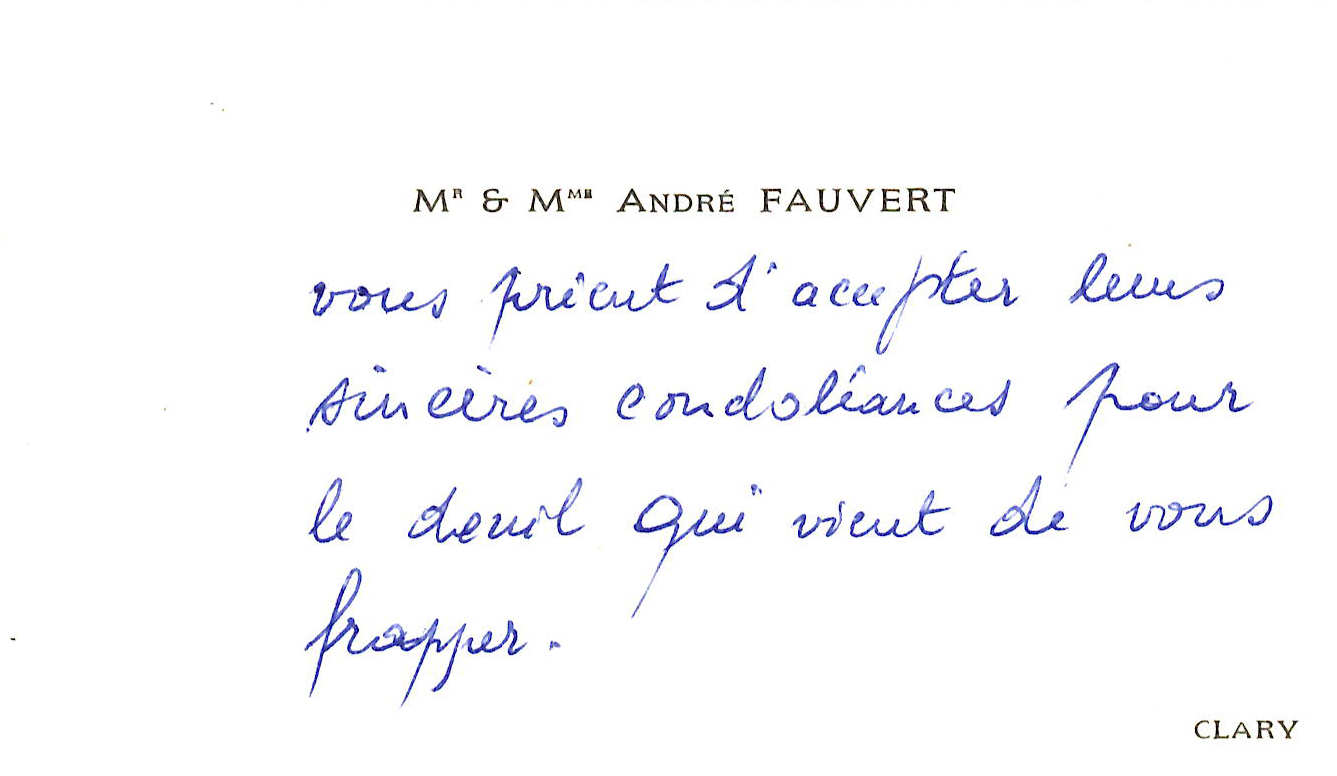 Mr & Mme André FAUVERT
vous prient d'accepter leurs
sincères condoléances pour
le deuil qui vient de vous
frapper.
CLARY